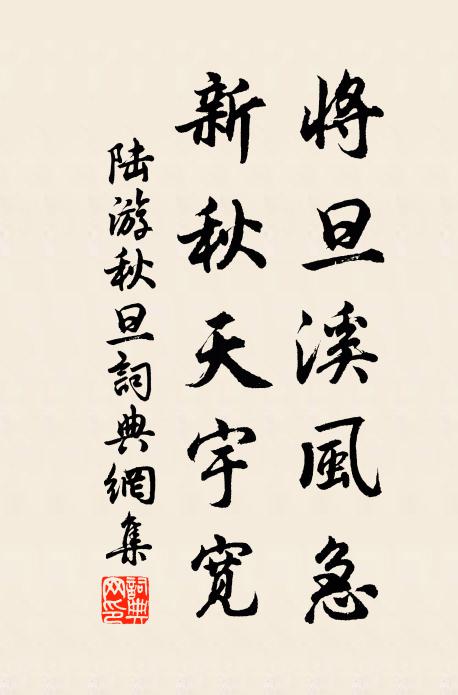 將旦溪風急
新秋天宇寬
陸游秋旦詞典網集
詞典网印